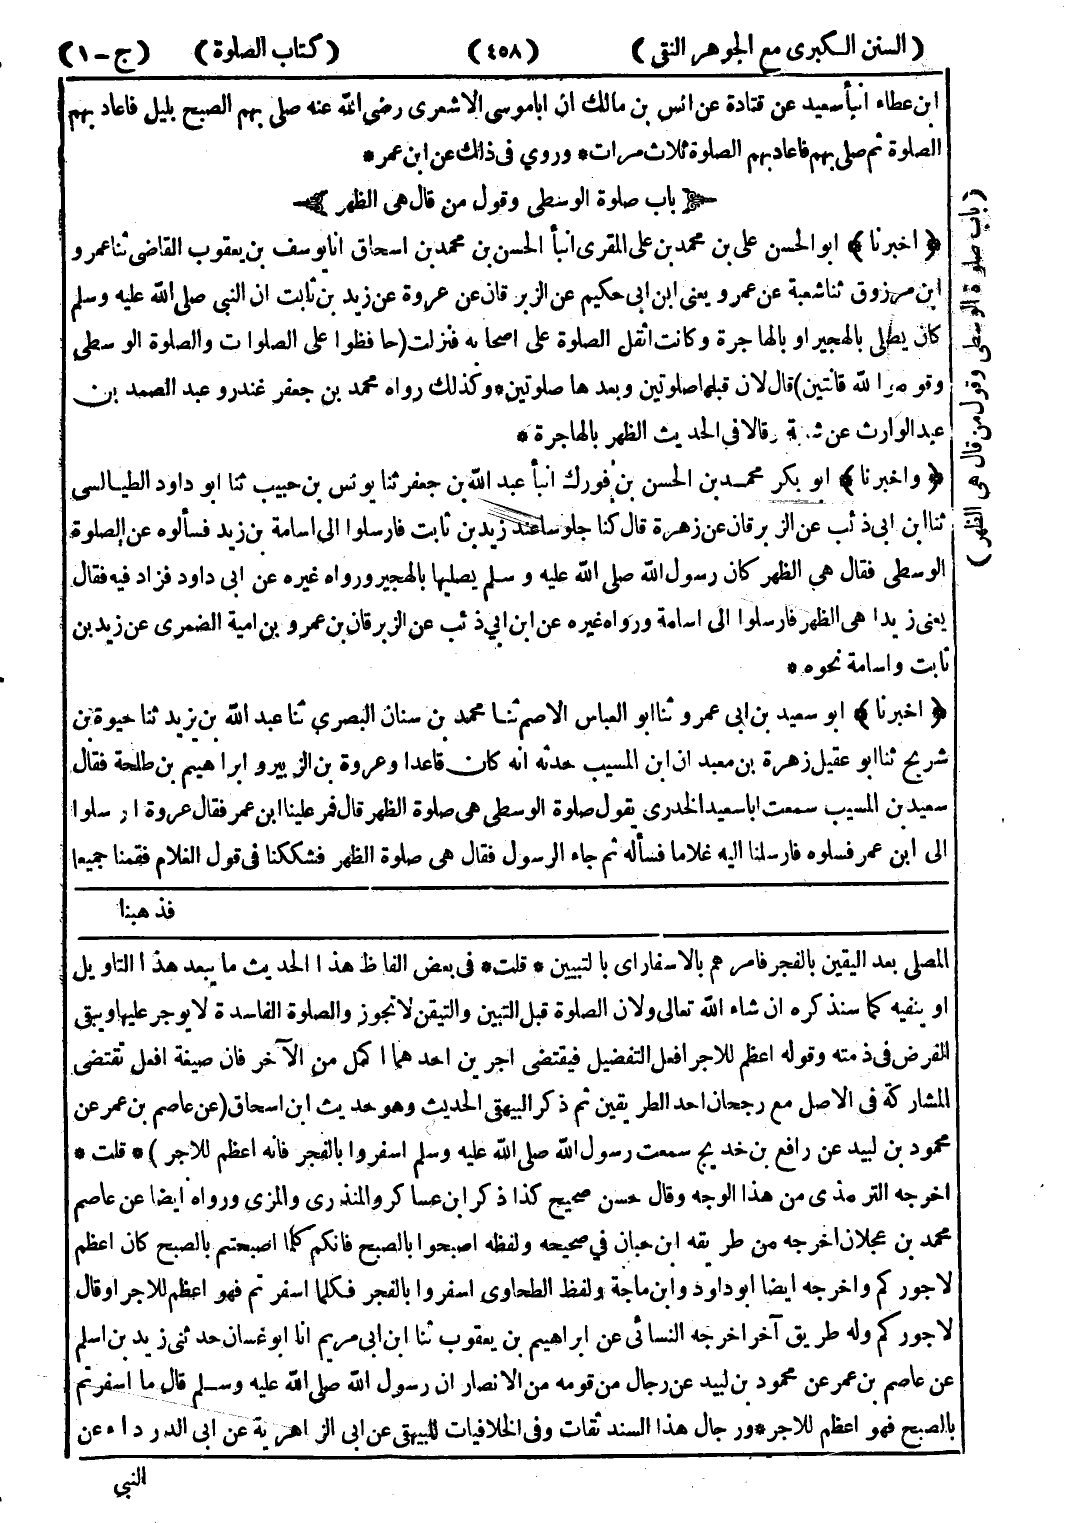 (السنن الكبرى مع الجوهر النقى) (٤٥٨) (كتاب الصلوة) (ج-١)
ابن عطاء انبأ سعيد عن قتادة عن انس بن مالك ان اباموسى الاشعرى رضى الله عنه صلى بهم الصبح بليل فاعاد بهم
الصلوة ثم صلى بهم فاعاد بهم الصلوة ثلاث مرات* وروي فى ذلك عن ابن عمر*
باب صلوة الوسطى وقول من قال هى الظهر
﴿ اخبرنا ﴾ ابو الحسن على بن محمد بن على المقرى انبأ الحسن بن محمد بن اسحاق انا يوسف بن يعقوب القاضى ثنا عمرو
ابن مرزوق ثنا شعبة عن عمرو يعنى ابن ابى حكيم عن الزبرقان عن عروة عن زيد بن ثابت ان النبى صلى الله عليه وسلم
كان يصلى بالهجير او بالهاجرة وكانت اثقل الصلوة على اصحابه فنزلت(حافظوا على الصلوات والصلوة الوسطى
وقوموا لله قانتين)قال لان قبلها صلوتين وبعدها صلوتين*وكذلك رواه محمد بن جعفر غندر وعبد الصمد بن
عبد الوارث عن شعبة وقالا فى الحديث الظهر بالهاجرة*
﴿ واخبرنا ﴾ ابو بكر محمد بن الحسن بن فورك انبأ عبد الله بن جعفر ثنا يونس بن حبيب ثنا ابو داود الطيالسى
ثنا ابن ابى ذئب عن الزبرقان عن زهرة قال كنا جلوسا عند زيد بن ثابت فارسلوا الى اسامة بن زيد فسألوه عن الصلوة
الوسطى فقال هي الظهر كان رسول الله صلى الله عليه وسلم يصليها بالهجير ورواه غيره عن ابى داود فزاد فيه فقال
يعنى زيدا هى الظهر فارسلوا الى اسامة ورواه غيره عن ابن ابي ذئب عن الزبرقان بن عمرو بن امية الضمرى عن زيد بن
ثابت واسامة نحوه*
﴿ اخبرنا ﴾ ابو سعيد بن ابى عمرو ثنا ابو العباس الاصم ثنا محمد بن سنان البصري ثنا عبد الله بن يزيد ثنا حيوة بن
شريح ثنا ابو عقيل زهرة بن معبد ان ابن المسيب حدثه انه كان قاعدا وعروة بن الزبير وابراهيم بن طلحة فقال
سعيد بن المسيب سمعت ابا سعيد الخدرى يقول صلوة الوسطى هى صلوة الظهر قال فمر علينا ابن عمر فقال عروة ارسلوا
الى ابن عمر فسلوه فارسلنا اليه غلاما فسأله ثم جاء الرسول فقال هى صلوة الظهر فشككنا فى قول الغلام فقمنا جميعا
فذهبنا
المصلى بعد اليقين بالفجر فامرهم بالاسفار اى بالتبيين * قلت* فى بعض الفاظ هذا الحديث ما يبعد هذا التاويل
او ينفيه كما سنذكره ان شاء الله تعالى ولان الصلوة قبل التبين والتيقن لا تجوز والصلوة الفاسدة لا يوجر عليها ويبقى
الفرض فى ذمته وقوله اعظم للاجر افعل التفضيل فيقتضى اجرين احدهما اكمل من الآخر فان صيغة افعل تقتضى
المشاركة فى الاصل مع رجحان احد الطريقين ثم ذكر البيهقى الحديث وهو حديث ابن اسحاق(عن عاصم بن عمر عن
محمود بن لبيد عن رافع بن خديج سمعت رسول الله صلى الله عليه وسلم اسفروا بالفجر فانه اعظم للاجر )* قلت *
اخرجه الترمذى من هذا الوجه وقال حسن صحيح كذا ذكر ابن عساكر والمنذرى والمزى ورواه ايضا عن عاصم
محمد بن عجلان اخرجه من طريقه ابن حبان في صحيحه ولفظه اصبحوا بالصبح فانكم كلما اصبحتم بالصبح كان اعظم
لاجوركم واخرجه ايضا ابو داود وابن ماجة ولفظ الطحاوى اسفروا بالفجر فكلما اسفرتم فهو اعظم للاجر اوقال
لاجوركم وله طريق آخر اخرجه النسائى عن ابراهيم بن يعقوب ثنا ابن ابى مريم انا ابو غسان حدثنى زيد بن اسلم
عن عاصم بن عمر عن محمود بن لبيد عن رجال من قومه من الانصار ان رسول الله صلى الله عليه وسلم قال ما اسفرتم
بالصبح فهو اعظم للاجر*ورجال هذا السند ثقات وفى الخلافيات للبيهقى عن ابى الزاهرية عن ابى الدرداء عن
النبي
(باب صلوة الوسطى وقول من قال هى الظهر)